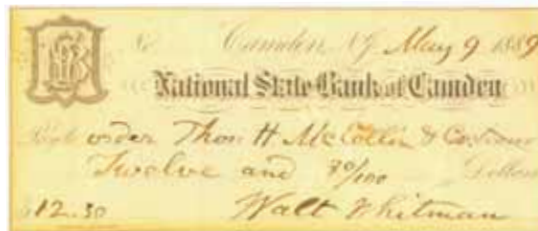 No. Camden, NJ. May 9 1889
National State Bank of Camden
order Thos H McCollin & Co
Twelve and 30/100 Dollars
$12.30 Walt Whitman